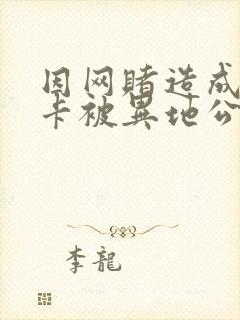 因网赌造成
卡被異地公
李龍